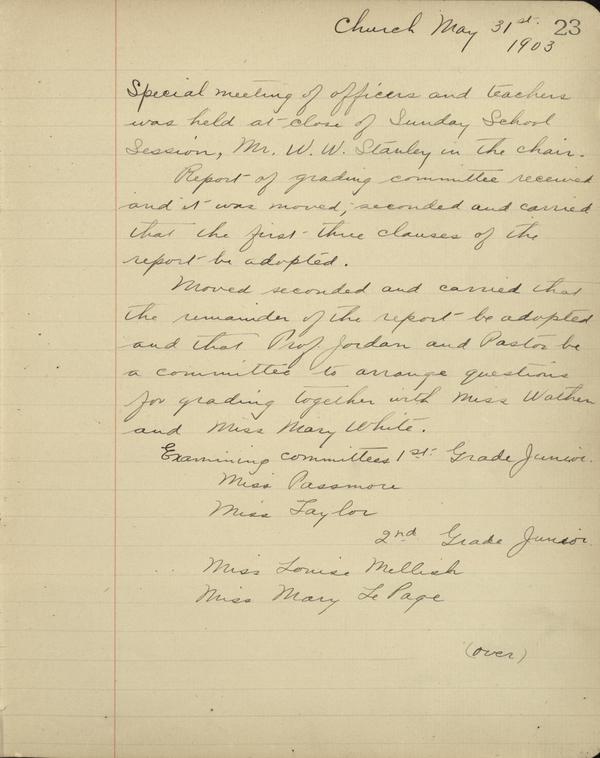 Church May 31st. 23
1903
Special meeting of officers and teachers
was held at close of Sunday School
Session, Mr. W. W. Stanley in the chair.
Report of grading committee received
and it was moved, seconded and carried
that the first three clauses of the
report be adopted.
Moved seconded and carried that
the remainder of the report be adopted
and that Prof. Jordan and Pastor be
a committee to arrange questions
for grading together with Miss Wathen
and Miss Mary White.
Examining committees 1st. Grade Junior.
Miss Passmore
Miss Taylor
2nd Grade Junior
Miss Louise Mellish
Miss Mary Le Page
(over)